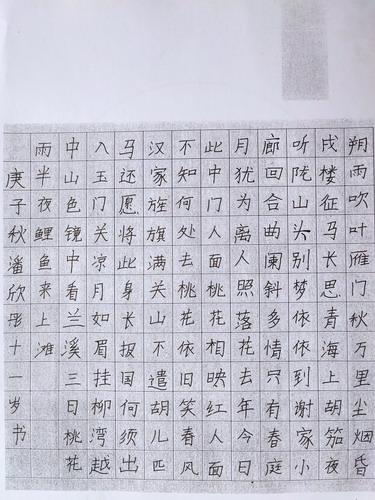 朔雨吹叶雁门秋万里尘烟昏
戍楼征马长思青海上胡笳夜
听陇山头别梦依依到谢家小
廊回合曲阑斜多情只有春庭
月犹为离人照落花去年今日
此中门人面桃花相映红人面
不知何处去桃花依旧笑春风
汉家旌旗满关山不遣胡儿匹
马还愿将此身长报国何须出
入玉门关凉月如眉挂柳湾越
中山色镜中看兰溪三日桃花
雨半夜鲤鱼来上滩
庚子秋潘欣彤十一岁书